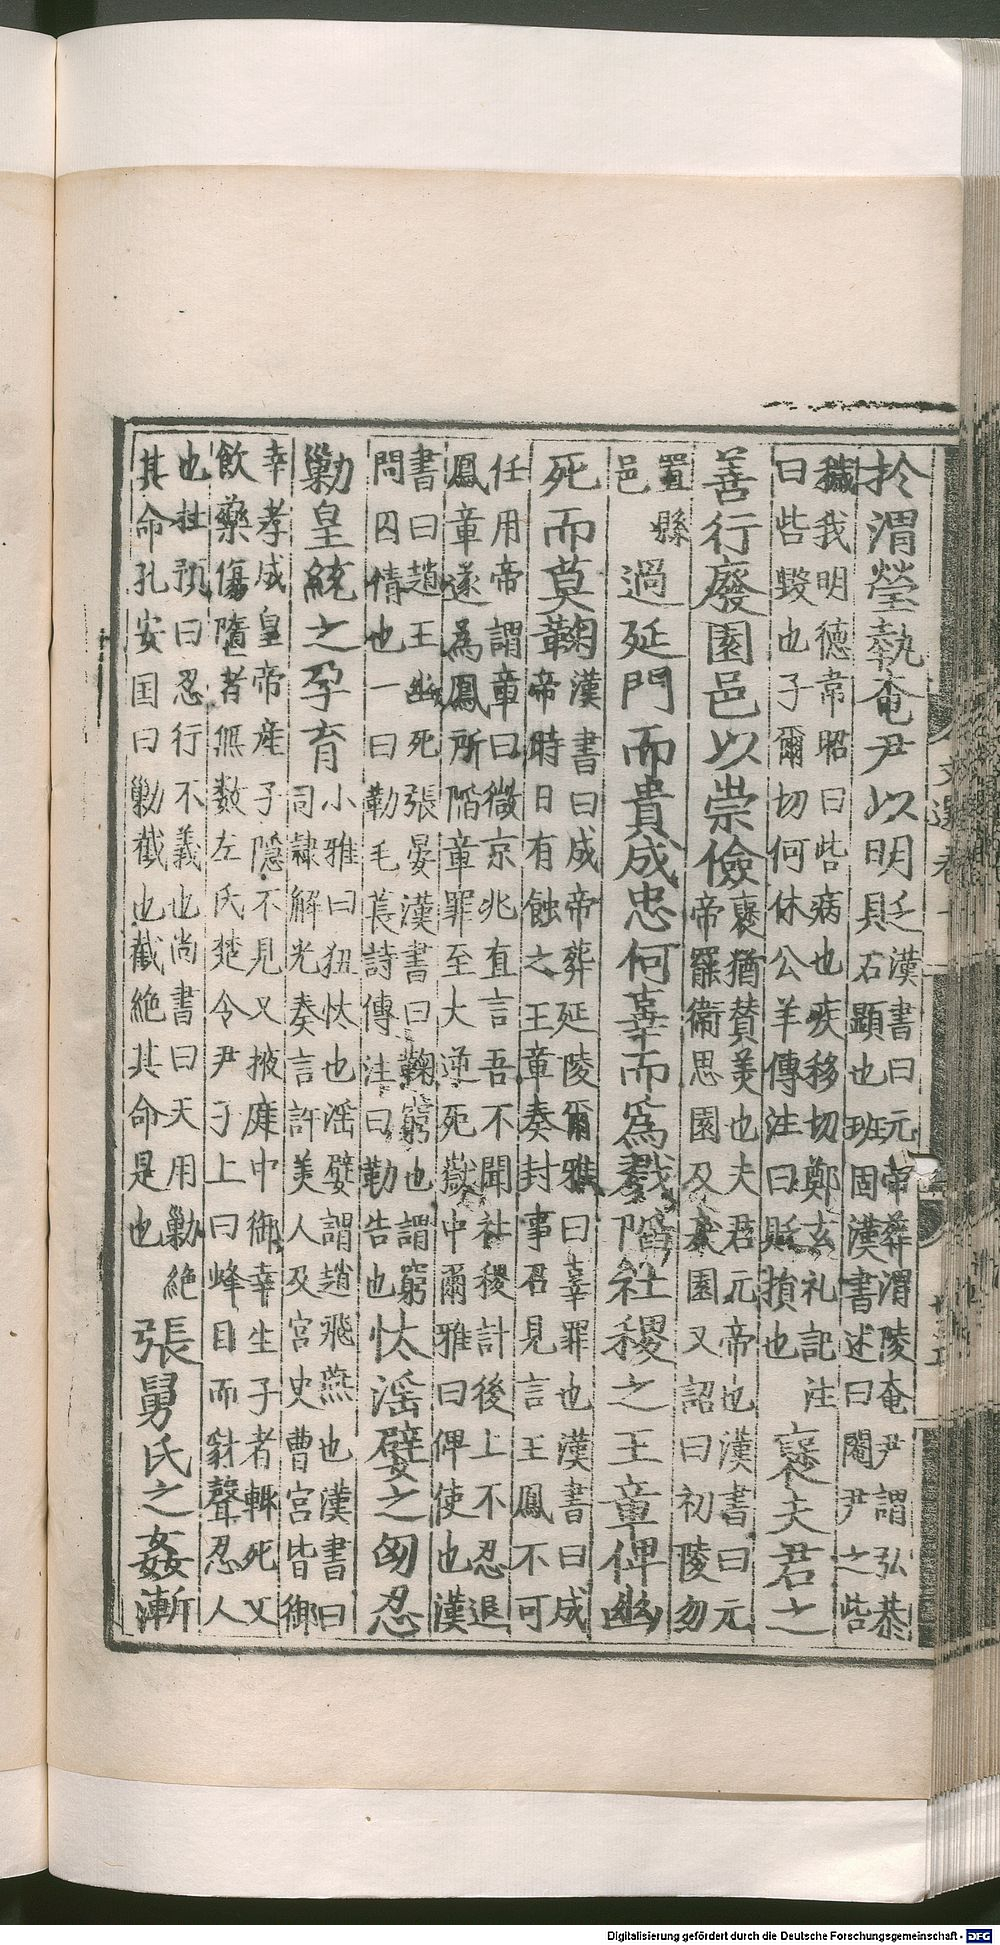 扵渭塋執奄尹以明貶
漢書曰元帝葬渭陵奄尹謂弘恭
石顯也班固漢書述曰閹尹之呰
穢我明德韋昭曰呰病也疾移切鄭玄礼記注
曰呰毀也子爾切何休公羊傳注曰貶損也
褒夫君之
善行廢園邑以崇儉
褒猶賛美也夫君元帝也漢書曰元
帝罷衛思園及戾園又詔曰初陵勿
置縣
邑
過延門而貴成忠何辜而為戮陷社稷之王章俾幽
死而莫鞠
漢書曰成帝葬延陵爾雅曰辜罪也漢書曰成
帝時日有蝕之王章奏封事召見言王鳳不可
任用帝謂章曰微京兆直言吾不聞社稷計後上不忍退
鳳章遂為鳳所陷章罪至大逆死獄中爾雅曰俾使也漢
書曰趙王幽死張晏漢書曰鞠窮也謂窮
問囚情也一曰勒毛萇詩傳注曰勒告也
忲淫嬖之匈忍
勦皇統之孕育
小雅曰狃忲也淫嬖謂趙飛燕也漢書曰
司隸解光奏言許美人及宮史曹宮皆御
幸孝成皇帝産子隱不見又掖庭中御幸生子者輒死又
飲藥傷墮者無数左氏楚令尹子上曰蜂目而豺聲忍人
也杜預曰忍行不義也尚書曰天用勦絶
其命孔安国曰勦截也截絶其命是也
張舅氏之姦漸
Digitalisierung gefördert durch die Deutsche Forschungsgemeinschaft - DFG